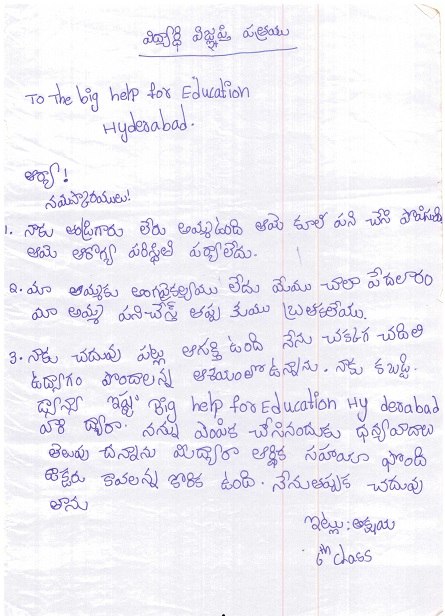 విద్యార్థి విజ్ఞప్తి పత్రము
To The big help for Education
Hyderabad.
ఆర్యా!
నమస్కారములు!
1. నాకు తండ్రిగారు లేరు అమ్మఉంది ఆమె కూలి పని చేసి
ఆమె ఆరోగ్య పరిస్థితి పర్వాలేదు.
2. మా అమ్మకు అంగవైకల్యము లేదు మేము చాలా పేదలారం
మా అమ్మ పనిచేస్తే తప్ప మేము బ్రతకలేము.
3. నాకు చదువు పట్ల ఆసక్తి ఉంది నేను చక్కగ చదివి
ఉద్యోగం పొందాలన్న ఆశయంతోఉన్నాను. నాకు కబడ్డి.
డ్యాన్సా ఇష్టం Big help for Education Hyderabad
వారి ద్వారా. నన్ను ఎంపిక చేసినందుకు ధన్యవాదాలు
తెలుపు చన్నాను మీద్వారా ఆర్థిక సహాయం పొంది
డాక్టరు కావలన్న కోరిక ఉంది. నేనుతప్పక చదువు
తాను
ఇట్లు: అక్షయ
6th class